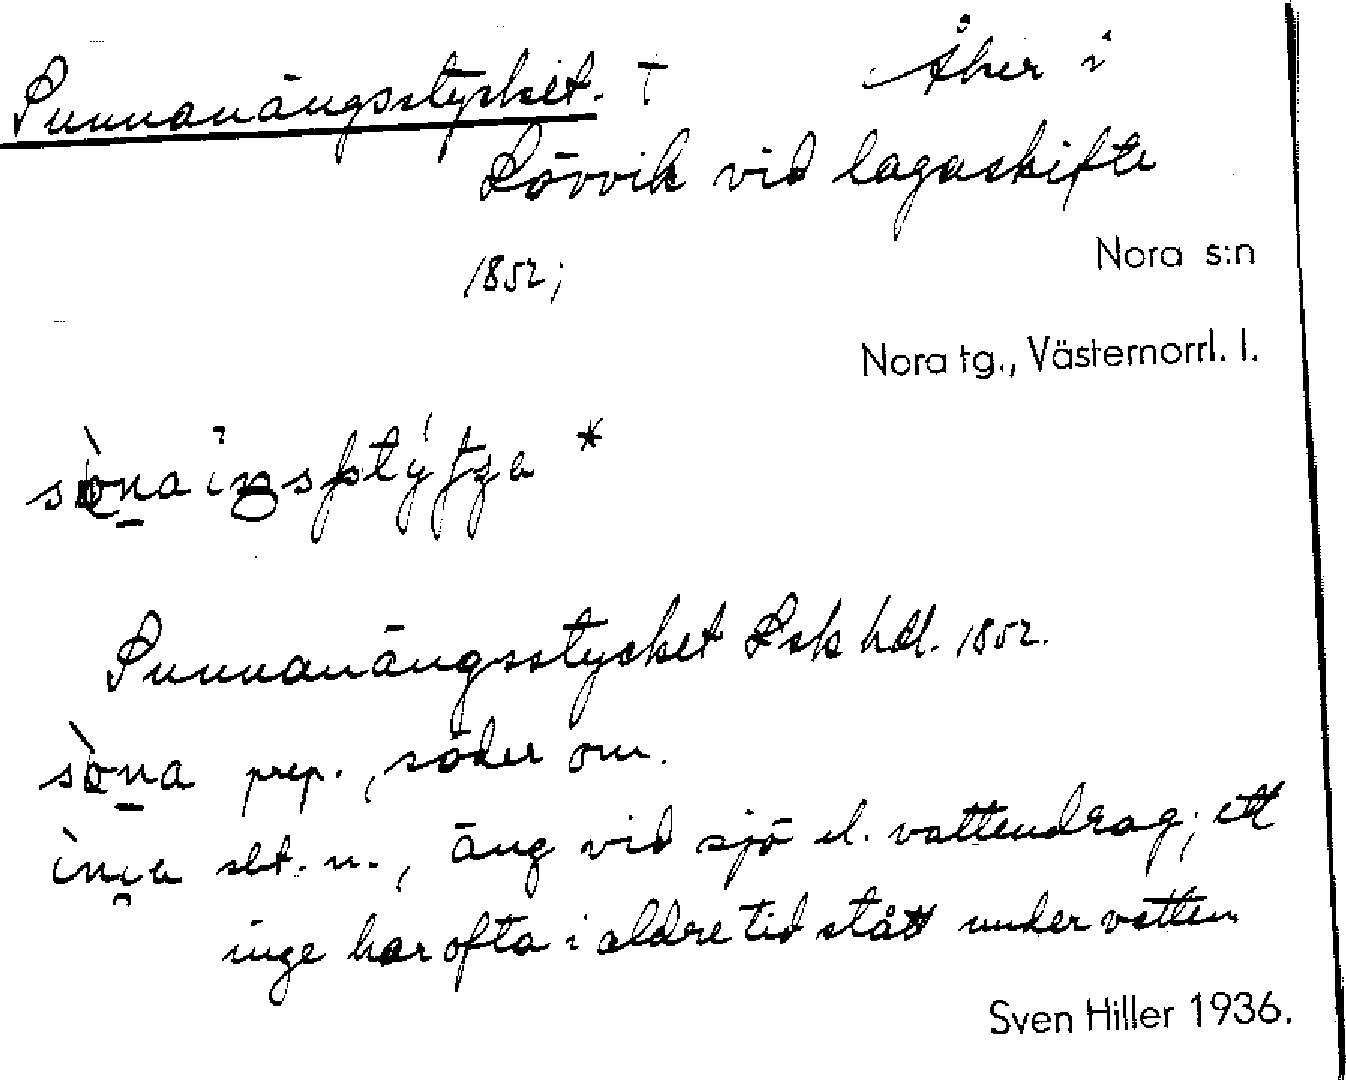 Sunnanängsstycket. † Åker i
Lövvik vid lagaskifte
1852;
Nora s:n
Nora tg., Västernorrl. l.
Sunnanängsstycket Lsk hdl. 1852.
prep., söder om.
sbt. n., äng vid sjö el. vattendrag; ett
inge har ofta i äldre tid stått under vatten
Sven Hiller 1936.